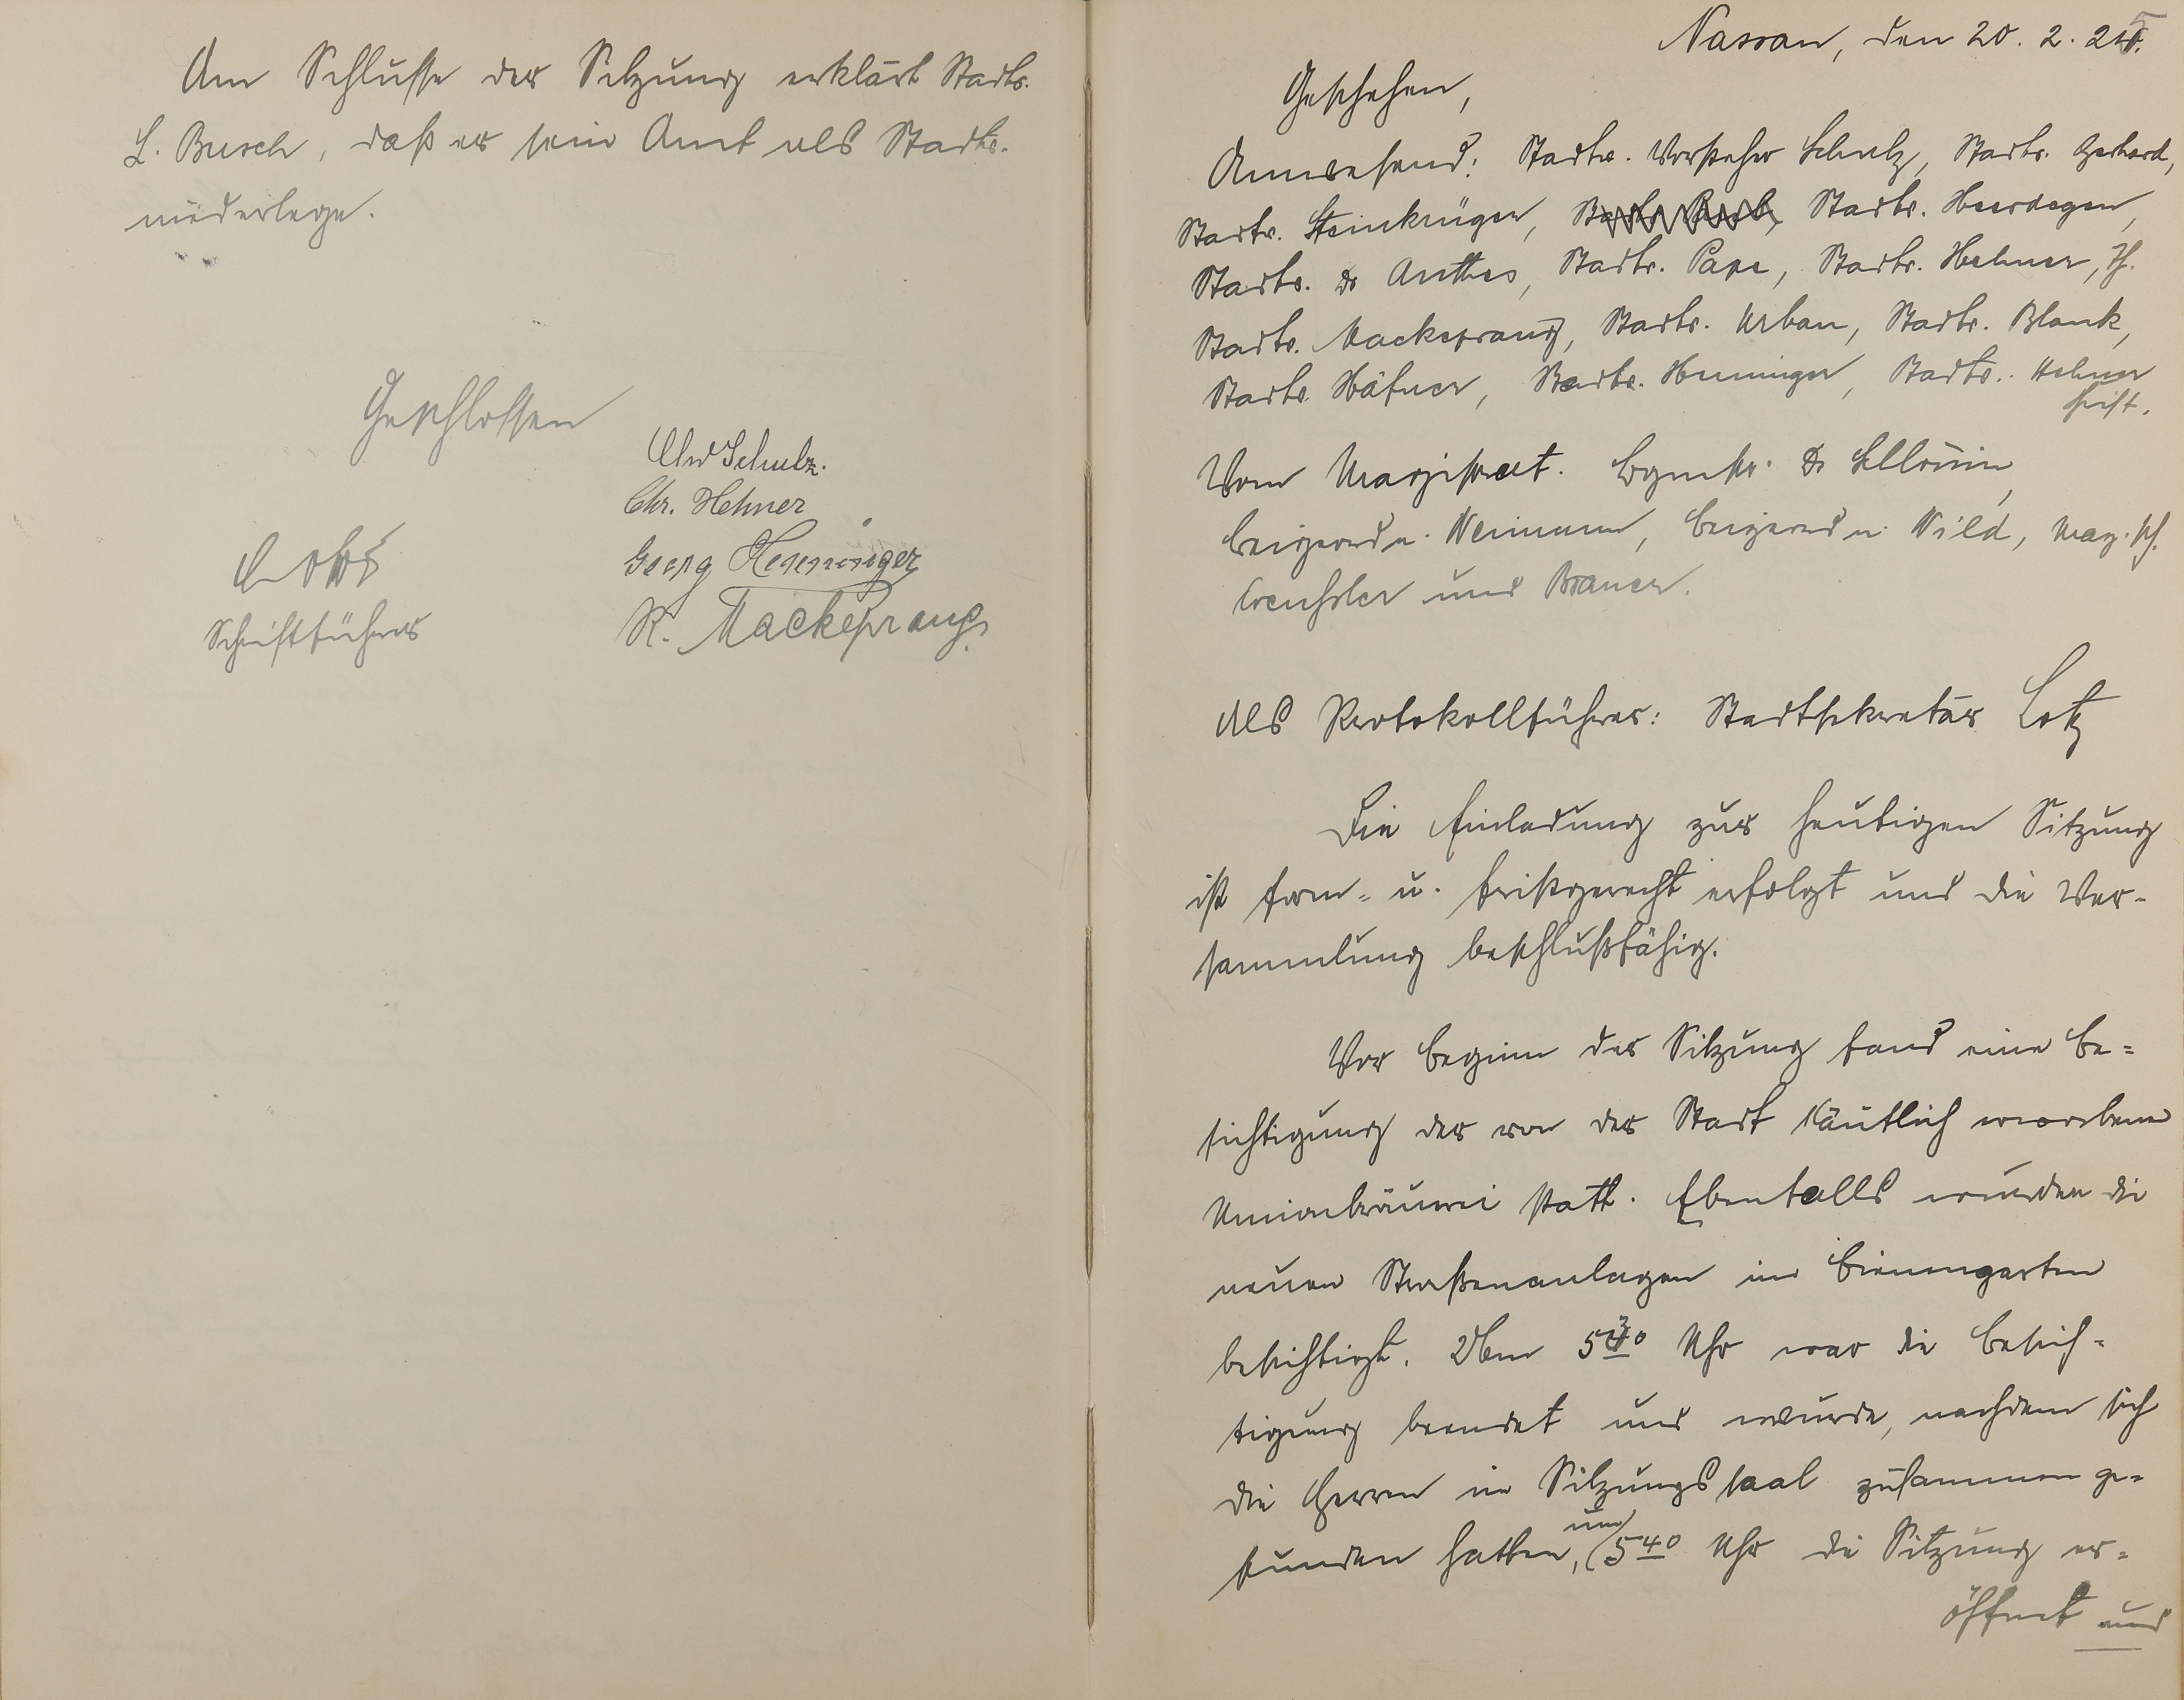 Am Schlusse der Sitzung erklärt Stadtv.
L. Busch, daß er sein Amt als Stadtv.
niederlege.
Geschlossen
Schulz.
Chr. Hehner
Georg Heninger
R. Mackeprang.
Lotz
Schriftführer
Nassau, den 20. 2. 25.
Geschehen,
Anwesend: Stadtv. Vorsteher Schulz, Stadtv. Gerhard,
Stadtv. Steinkrüger, Stadtv. Heerdegen,
Stadtv. Dr Anthes, Stadtv. Pape, Stadtv. Hehner, Th.
Stadtv. Mackeprang, Stadtv. Urban, Stadtv. Blank,
Stadtv. Häfner, Stadtv. Heninger, Stadtv. Hehner
Christ.
Vom Magistrat. Bgmstr. Dr
Beigeordn. Weimann, Beigeordn. Wild, Mag. Sch.
und Brauer.
Als Protokollführer: Stadtsekretär Lotz
Die Einladung zur heutigen Sitzung
ist form- u. fristgerecht erfolgt und die Ver-
sammlung beschlußfähig.
Vor Beginn der Sitzung fand eine Be-
sichtigung der von der Stadt käuflich erworbenen
Unionbrauerei statt. Ebenfalls wurden die
neuen Straßenanlagen im Bienengarten
besichtigt. Um 5 30 Uhr war die Besich-
tigung beendet und wurde, nachdem sich
die Herren im Sitzungssaal zusammen ge-
funden hatten, um 5 40 Uhr die Sitzung er-
öffnet und